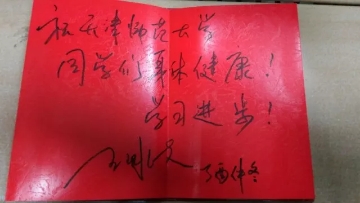 祝天津师范大学
同学们身体健康！
学习进步！
丁酉仲冬